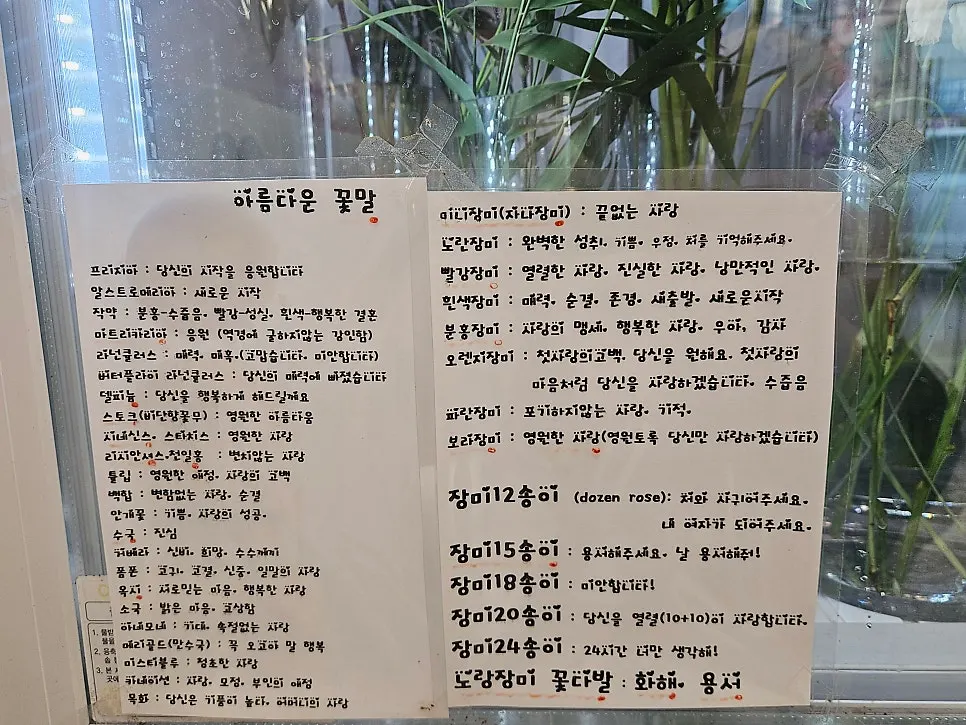 아름다운 꽃말
프리지아 : 당신의 시작을 응원합니다
알스트로메리아 : 새로운 시작
작약 : 분홍-수줍음. 빨강-성실. 흰색-행복한 결혼
마트리카리아 : 응원 (역경에 굴하지않는 강인함)
라넌큘러스 : 매력. 매혹.(고맙습니다. 미안합니다)
버터플라이 라넌큘러스 : 당신의 매력에 빠졌습니다
델피늄 : 당신을 행복하게 해드릴게요
스토크(비단향꽃무) : 영원한 아름다움
시네신스. 스타치스 : 영원한 사랑
리시안셔스.천일홍 : 변치않는 사랑
튤립 : 영원한 애정. 사랑의 고백
백합 : 변함없는 사랑. 순결
안개꽃 : 기쁨. 사랑의 성공.
수국 : 진심
거베라 : 신비. 희망. 수수께끼
폼폰 : 고귀. 고결. 신중. 일말의 사랑
옥시 : 서로믿는 마음. 행복한 사랑
소국 : 밝은 마음. 고상함
아네모네 : 기대. 속절없는 사랑
메리골드(만수국) : 꼭 오고야 말 행복
미스티블루 : 청초한 사랑
카네이션 : 사랑. 모정. 부인의 애정
목화 : 당신은 기품이 높다. 어머니의 사랑
미니장미(자나장미) : 끝없는 사랑
노란장미 : 완벽한 성취. 기쁨. 우정. 저를 기억해주세요.
빨강장미 : 열렬한 사랑. 진실한 사랑. 낭만적인 사랑.
흰색장미 : 매력. 순결. 존경. 새출발. 새로운시작
분홍장미 : 사랑의 맹세. 행복한 사랑. 우아, 감사
오렌지장미 : 첫사랑의고백. 당신을 원해요. 첫사랑의
마음처럼 당신을 사랑하겠습니다. 수줍음
파란장미 : 포기하지않는 사랑. 기적.
보라장미 : 영원한 사랑(영원토록 당신만 사랑하겠습니다)
장미12송이 (dozen rose): 저와 사귀어주세요.
내 여자가 되어주세요.
장미15송이 : 용서해주세요. 날 용서해줘!
장미18송이 : 미안합니다!
장미20송이 : 당신을 열렬(10+10)이 사랑합니다.
장미24송이 : 24시간 너만 생각해!
노랑장미 꽃다발 : 화해. 용서